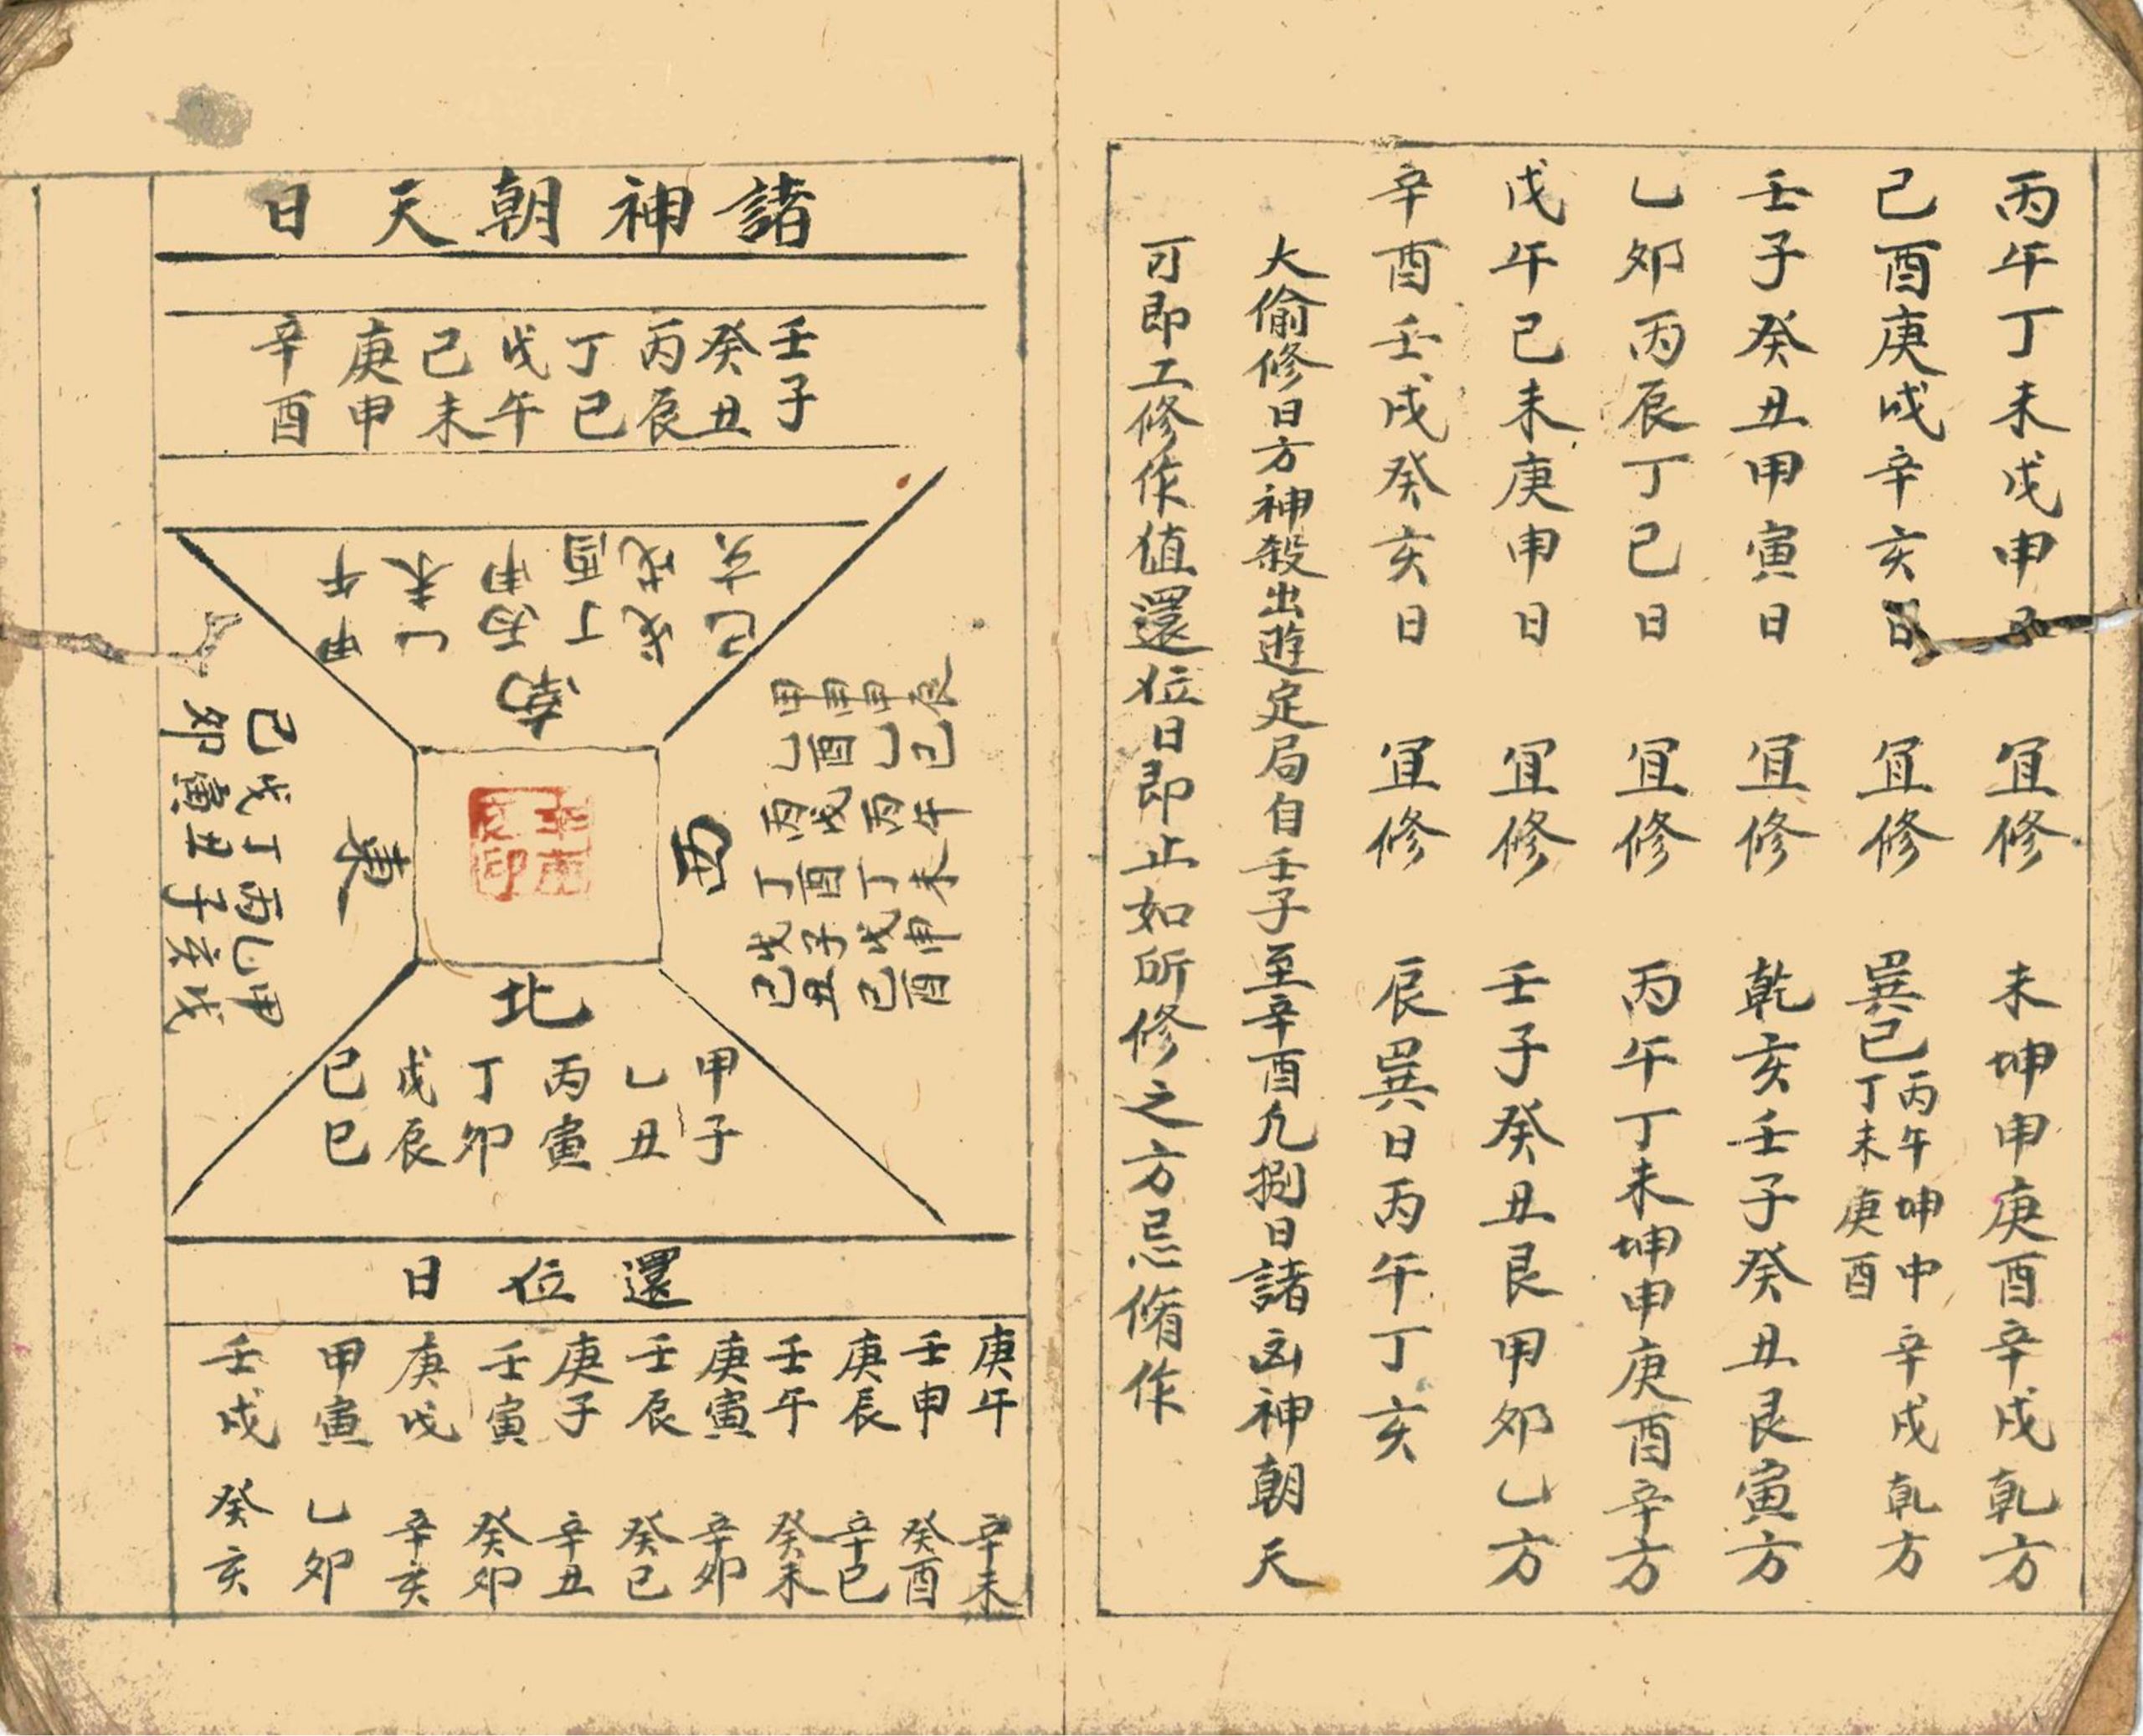 丙午丁未戊申日 宜修 未坤申庚酉辛戌乾方
己酉庚戌辛亥日 宜修 巽巳丙午坤中丁未庚酉辛戌乾方
壬子癸丑甲寅日 宜修 乾亥壬子癸丑艮寅方
乙卯丙辰丁巳日 宜修 丙午丁未坤申庚酉辛方
戊午己未庚申日 宜修 壬子癸丑艮甲卯乙方
辛酉壬戌癸亥日 宜修 辰巽日丙午丁亥
大偷修日方神殺出遊定局自壬子至辛酉凢捌日諸凶神朝天
可即工修作值還位日即止如所修之方忌脩作
諸神朝天日
壬子
癸丑
丙辰
丁巳
戊午
己未
庚申
辛酉
南
甲午
乙未
丙申
丁酉
戊戌
己亥
西
辰巳午未申酉
甲乙丙丁戊己
申酉戌酉子丑
甲乙丙丁戊己
東
甲乙丙丁戊己
戌亥子丑寅卯
北
甲子
乙丑
丙寅
丁卯
戊辰
己巳
還位日
庚午 辛未
壬申 癸酉
庚辰 辛巳
壬午 癸未
庚寅 辛卯
壬辰 癸巳
庚子 辛丑
壬寅 癸卯
庚戌 辛亥
甲寅 乙卯
壬戌 癸亥